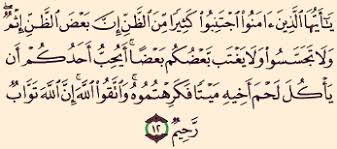 يَـٰٓأَيُّهَا ٱلَّذِينَ ءَامَنُوا۟ ٱجْتَنِبُوا۟ كَثِيرًا مِّنَ ٱلظَّنِّ إِنَّ بَعْضَ ٱلظَّنِّ إِثْمٌ ۖ
وَلَا تَجَسَّسُوا۟ وَلَا يَغْتَب بَّعْضُكُم بَعْضًا ۚ أَيُحِبُّ أَحَدُكُمْ أَن
يَأْكُلَ لَحْمَ أَخِيهِ مَيْتًا فَكَرِهْتُمُوهُ ۚ وَٱتَّقُوا۟ ٱللَّهَ ۚ إِنَّ ٱللَّهَ تَوَّابٌ
رَّحِيمٌ ١٢